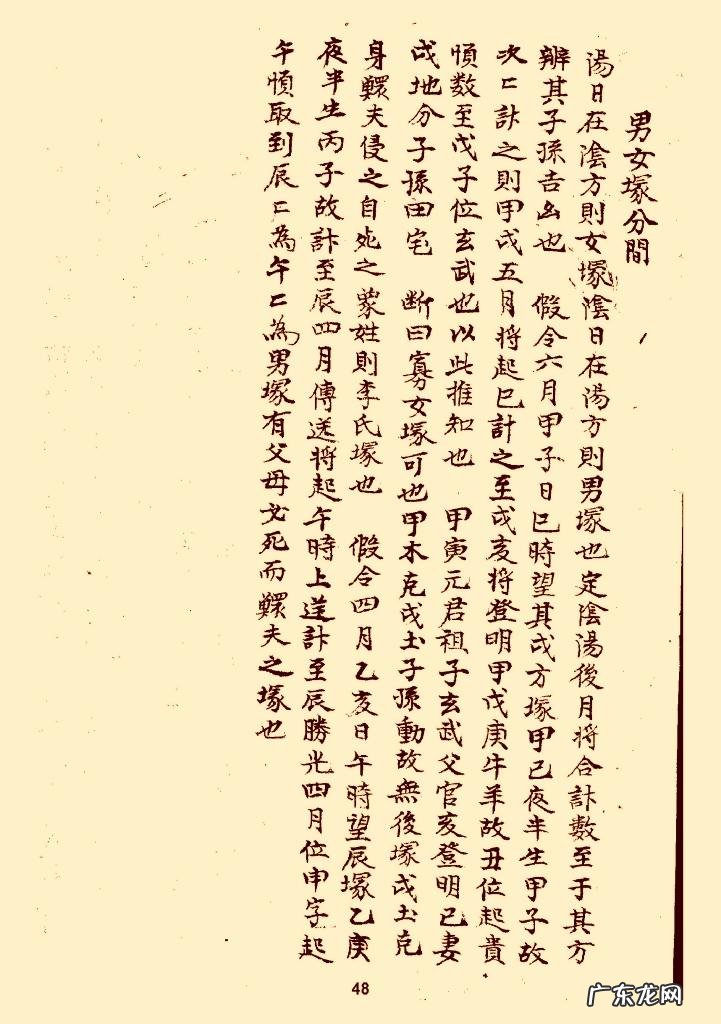 男女塚分間
湯日在陰方則女塚陰日在湯方則男塚也定陰湯後月将合計數至于其方
辨其子孫吉凶也 假令六月甲子日巳時望其戌方塚甲己夜半生甲子故
次匕計之則甲戌五月将起巳計之至戌亥将登明甲戊庚牛羊故丑位起貴
順数至戊子位玄武也以此推知也 甲寅元君祖子玄武父官亥登明巳妻
戌地分子孫田宅 断曰寡女塚可也甲木克戌土子孫動故無後塚戌土克
身鰥夫侵之自死之蒙姓則李氏塚也 假令四月乙亥日午時望辰塚乙庚
夜半生丙子故計至辰四月傳送将起午時上送計至辰勝光四月位申字起
午順取到辰匕為午匕為男塚有父母女死而鰥夫之塚也
48
广东龙网